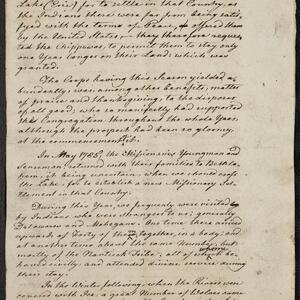 Lake (Erie) for to settle in that Country, as
the Indians there were far from being satis-
fyed with the terms of Peace, as offered them
by the United States, — they therefore reques-
ted the Chippeways, to permit them to stay only
one Year longer on their Land; which was
granted.
The Crops having this Season yielded a-
bundantly; was among other benefits, matter
of praise and thanksgiving, to the disposer
of all good; who so manifestly had supported
this Congregation throughout the whole Year,
although the prospect had been so gloomy,
at the commencement of it.
In May 1785, the Missionaries Youngman and
Senseman returned with their families to Bethle-
hem, it being uncertain when we should cross
the Lake, for to establish a new Missionary Set-
tlement in that Country.
During this Year, we frequently were visited
by Indians who were strangers to us; generally
Delawares and Mohegans. One time there were
upward of Forty of them together, in a body; and
at another time about the same Number, but
mostly of the Nantikok Tribe; all of whom be-
haved civilly and attended divine service during
their stay.
In the Winter following, when the Rivers were
covered with Ice, a great Number of Wolves came